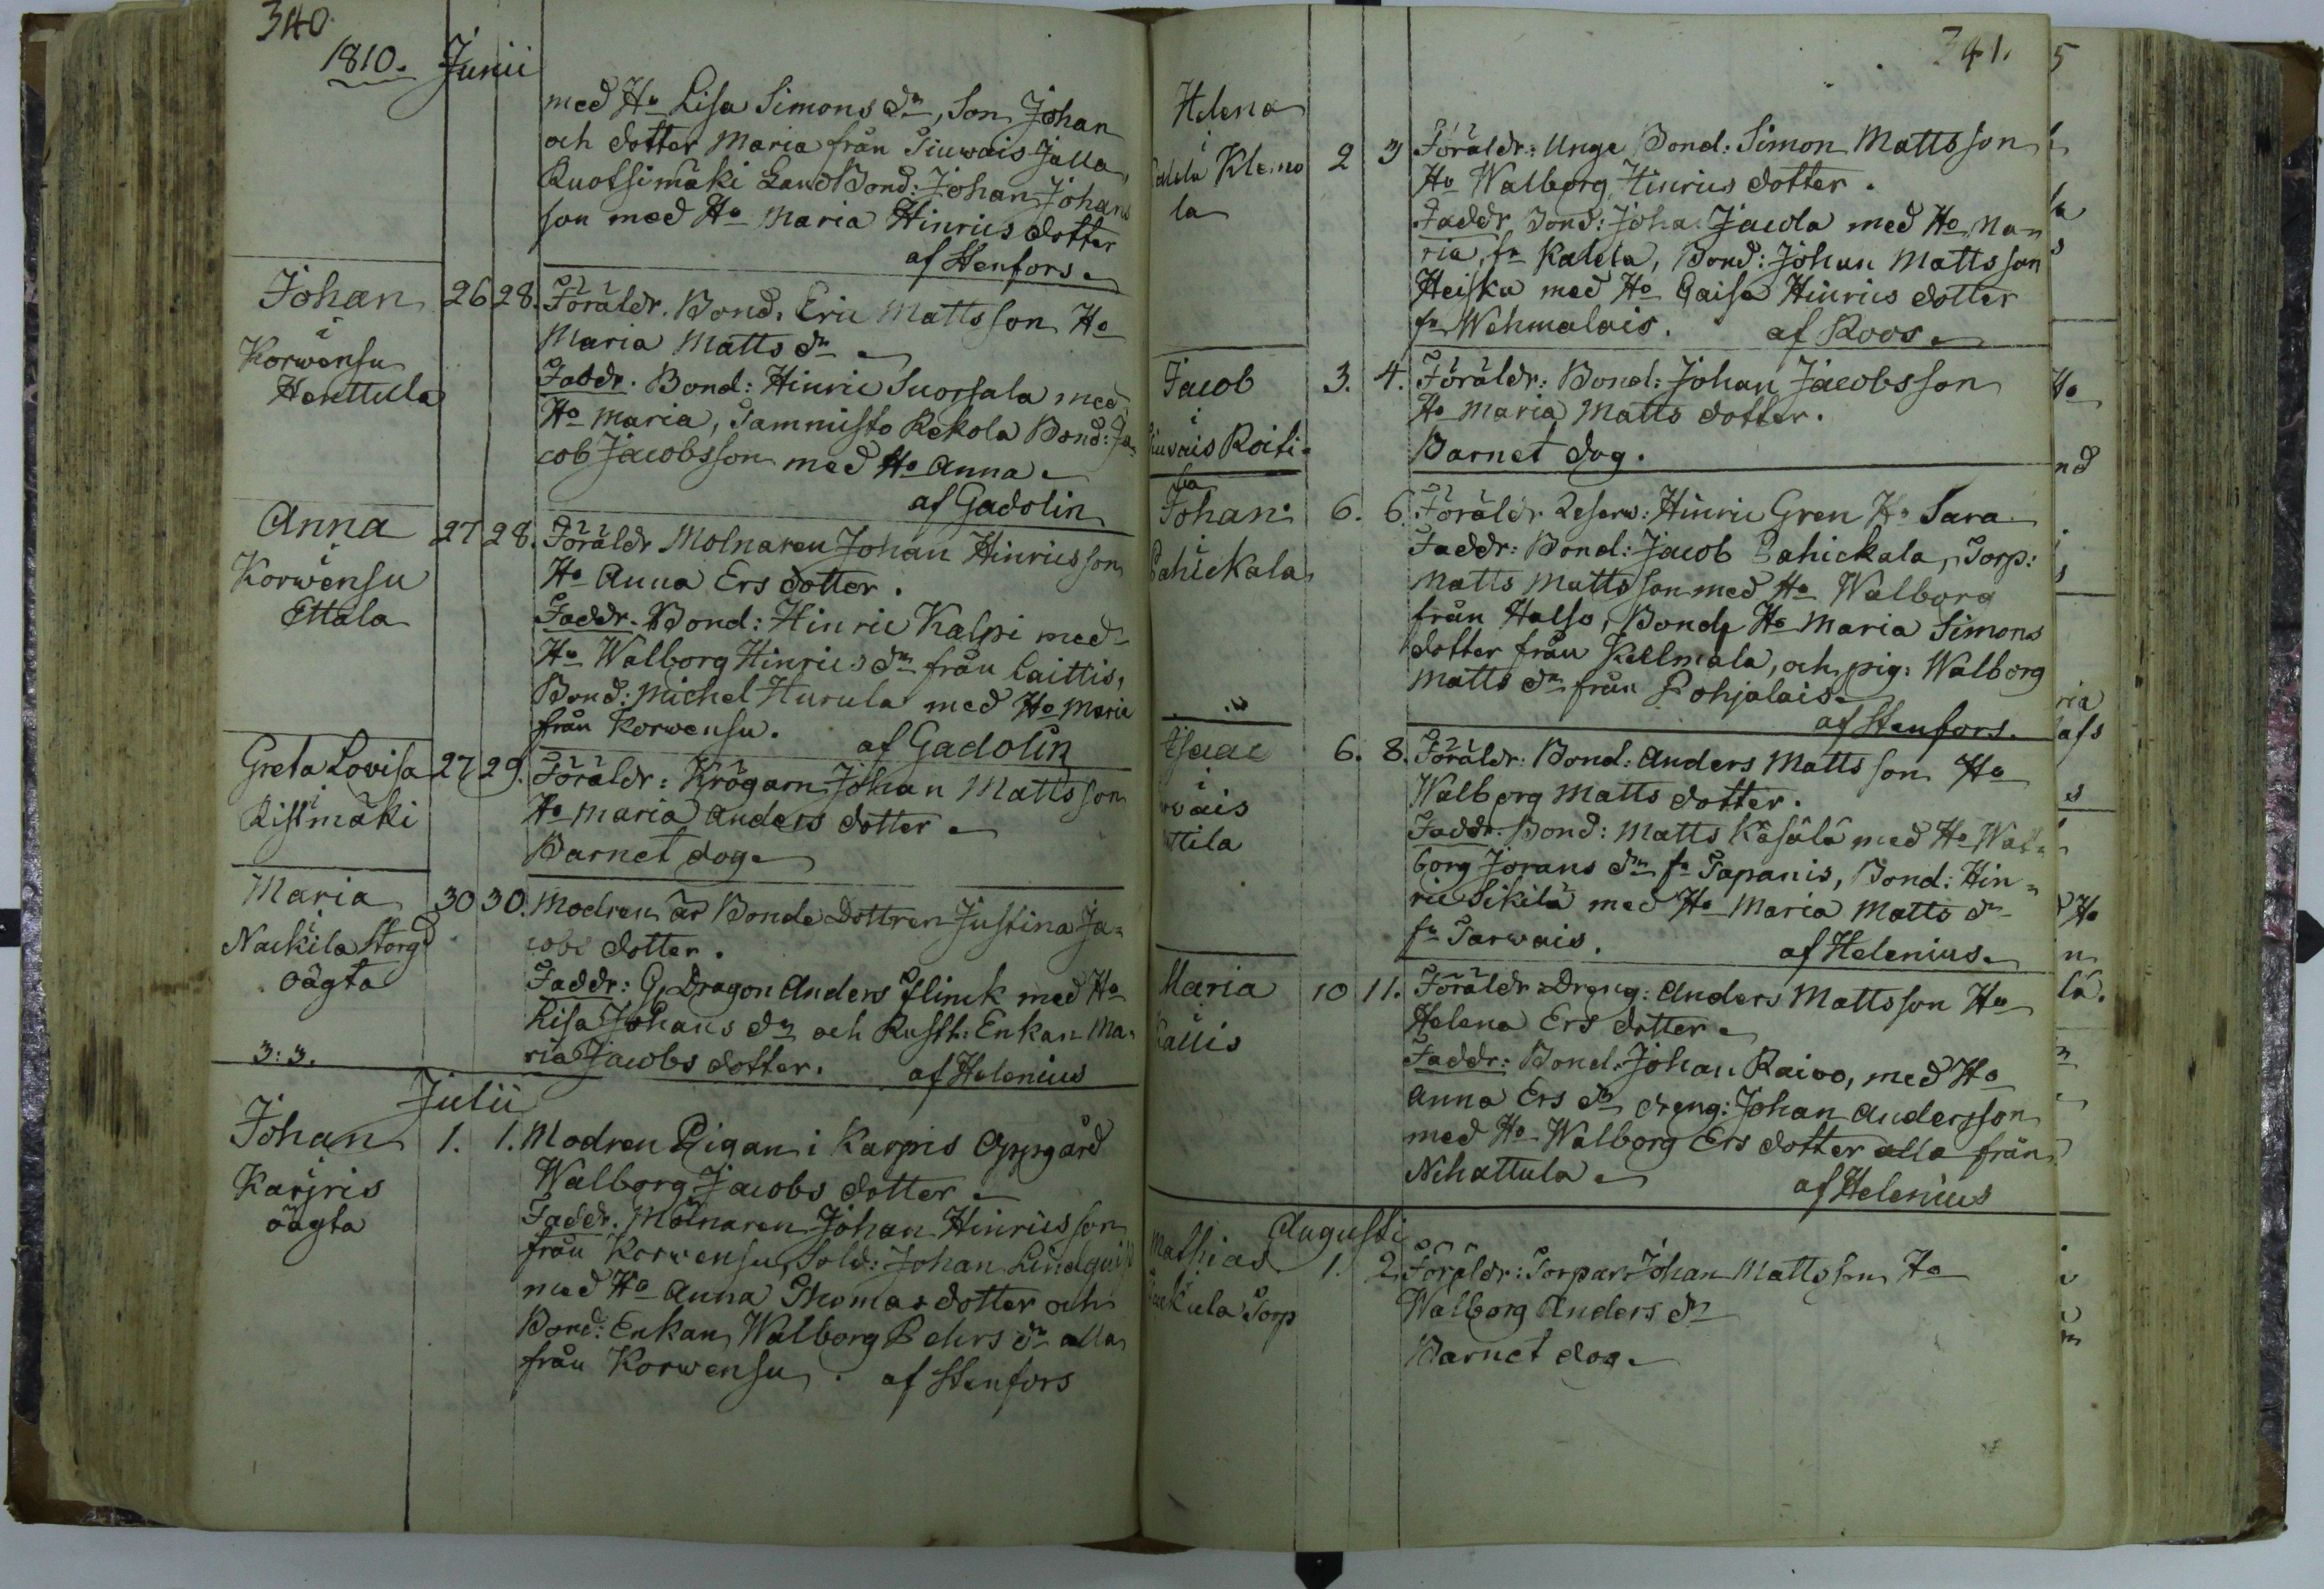 340.
1810. Junii
med Ho Lisa Simons dr, Son Johan
och dotter Maria från Siuwais Jalla,
Ruotsimäki LandBond: Johan Johans
son med Ho Maria Hinrics dotter
af Stenfors.
Johan 26 28. Föräldr. Bond. Eric Mattsson Ho
i
Korwensu
Henttula
Maria Matts dr
Faddr. Bond: Hinric Suorsala med
Ho Maria, Tammisto Rekola Bond: Ja-
cob Jacobsson med Ho Anna.
af Gadolin
Anna 27 28. Föräldr Molnaren Johan Hinricsson
i
Korwensu
Ettala
Ho Anna Ers dotter.
Faddr. Bond: Hinric Kalpi med
Ho Walborg Hinrics dr från Laittis,
Bond: Michel Hurula med Ho Maria
från Korwensu. af Gadolin
Greta Lovisa 27 29. Föräldr: Krögarn Johan Mattsson
i
Ristimäki
Ho Maria Anders dotter
Barnet dog.
Maria 30 30. Modren är Bonde Dottren Justina Ja-
i
Nackila Storgd
oägta
cobs dotter.
Faddr: G. Dragon Anders Flinck med Ho
Lisa Johans dr och Rusth: Enkan Ma-
ria Jacobs dotter. af Helenius
3: 3.
Julii
Johan 1. 1. Modren Pigan i Karpis Oppgård
i
Karjris
oägta
Walborg Jacobs dotter
Faddr. Molnaren Johan Hinricsson
från Korwensu, Sold: Johan Lindquist
med Ho Anna Thomas dotter och
Bond: Enkan Walborg Pehrs dr alla
från Korwensu. af Stenfors
341.
Helena
i
Klemo
la
2 3 Föräldr: Unge Bond: Simon Mattsson
Ho Walborg Hinrics dotter.
Faddr Bond: Joha Jacola med Ho Ma-
ria, fr Kalela, Bond: Johan Mattsson
Heiska med Ho Caisa Hinrics dotter
fr Wehmalais. af Roos.
Jacob
i
Siuvais Roiti-
la
3. 4. Föräldr: Bond: Johan Jacobsson
Ho Maria Matts dotter.
Barnet dog.
Johan
i
Pahickala
6. 6. Föräldr Reserv: Hinric Gren Ho Sara
Faddr: Bond: Jacob Pahickala, Torp:
Matts Mattsson med Ho Walborg
från Halso, Bonde Ho Maria Simons
dotter från Kellmala, och pig: Walborg
Matts dr från Pohjalais.
af Stenfors.
Isaac
i
wais
ttila
6. 8. Föräldr: Bond: Anders Mattsson Ho
Walborg Matts dotter.
Faddr: Bond: Matts Käsälä med Ho Wal-
borg Jorans dr fr Papanis, Bond: Hin-
ric Sikilä med Ho Maria Matts dr
fr Tarwais. af Helenius.
Maria
Kallis
10 11. Föräldr: Dreng: Anders Mattsson Ho
Helena Ers dotter
Faddr: Bond: Johan Raivo, med Ho
Anna Ers dr, dreng: Johan Andersson
med Ho Walborg Ers dotter alla från
Nihattula. af Helenius
Augusti
Mathias
kula Torp
1. 2. Föräldr: Torparn Johan Mattsson Ho
Walborg Anders dr
Barnet dog.
5
Ho
nd
ria
afs
s
Ho
n
lä.